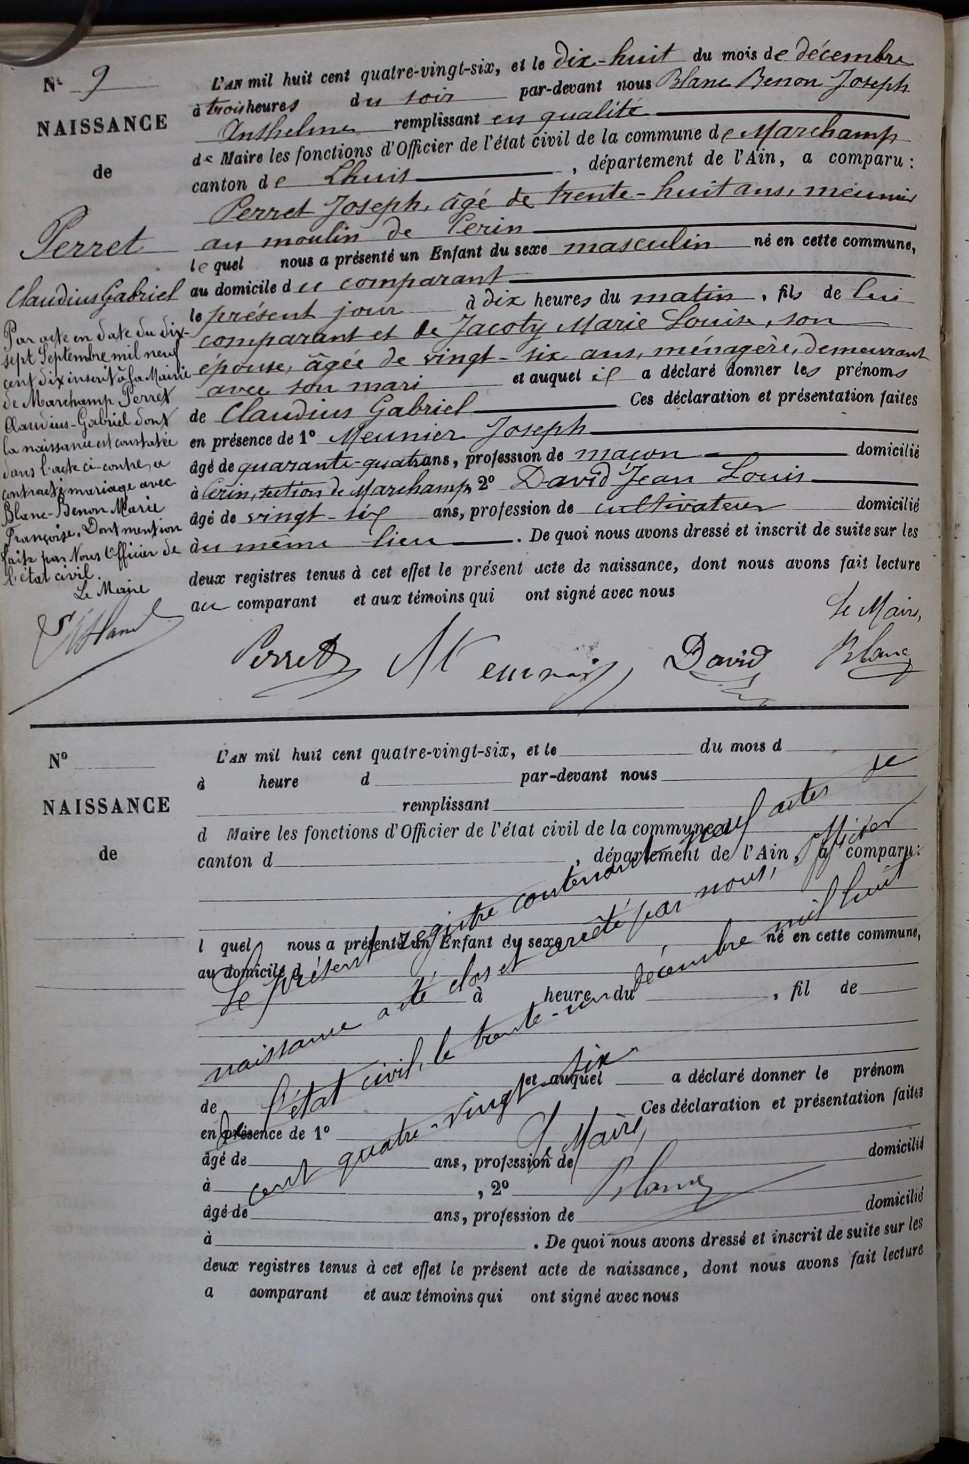 Nº 9
NAISSANCE
de
Perret
Claudius Gabriel
Par acte en date du dix-
sept Septembre mil neuf
cent dix inscrit à la Mairie
de Marchamp Perret
Claudius-Gabriel dont
la naissance est constatée
dans l'acte ci-contre, a
contracté mariage avec
Blanc-Benon Marie
Françoise. Dont mention
faite par Nous Officier de
l'état civil.
Le Maire
L'AN mil huit cent quatre-vingt-six, et le dix-huit du mois de décembre
à trois heures du soir par-devant nous Blanc Benon Joseph
Anthelme remplissant en qualité
de Maire les fonctions d'Officier de l'état civil de la commune de Marchamp
canton de Lhuis, département de l'Ain, a comparu :
Perret Joseph, âgé de trente-huit ans, meunier
au moulin de Cerin
lequel nous a présenté un Enfant du sexe masculin né en cette commune,
au domicile du comparant
le présent jour à dix heures du matin, fils de lui
comparant et de Jacoty Marie Louise, son
épouse, âgée de vingt-six ans, ménagère, demeurant
avec son mari et auquel il a déclaré donner les prénoms
de Claudius Gabriel Ces déclaration et présentation faites
en présence de 1º Meunier Joseph
âgé de quarante-quatre ans, profession de maçon domicilié
à Cerin, section de Marchamp 2º David Jean Louis
âgé de vingt-six ans, profession de cultivateur domicilié
au même lieu. De quoi nous avons dressé et inscrit de suite sur les
deux registres tenus à cet effet le présent acte de naissance, dont nous avons fait lecture
au comparant et aux témoins qui ont signé avec nous
Le Maire,
Perret Meunier David Blanc
Nº
NAISSANCE
de
L'AN mil huit cent quatre-vingt-six, et le du mois d
à heure d par-devant nous
remplissant
d Maire les fonctions d'Officier de l'état civil de la commune d
canton d , département de l'Ain, a comparu :
l quel nous a présenté un Enfant du sexe né en cette commune,
au domicile d
à heure du , fil de
et auquel a déclaré donner le prénom
de Ces déclaration et présentation faites
en présence de 1º
âgé de ans, profession de domicilié
à , 2º
âgé de ans, profession de domicilié
à . De quoi nous avons dressé et inscrit de suite sur les
deux registres tenus à cet effet le présent acte de naissance, dont nous avons fait lecture
a comparant et aux témoins qui ont signé avec nous
Le présent registre contenant neuf actes de
naissance a été clos et arrêté par nous, officier
de l'état civil, le trente-un décembre mil huit
cent quatre-vingt-six
Le Maire,
Blanc